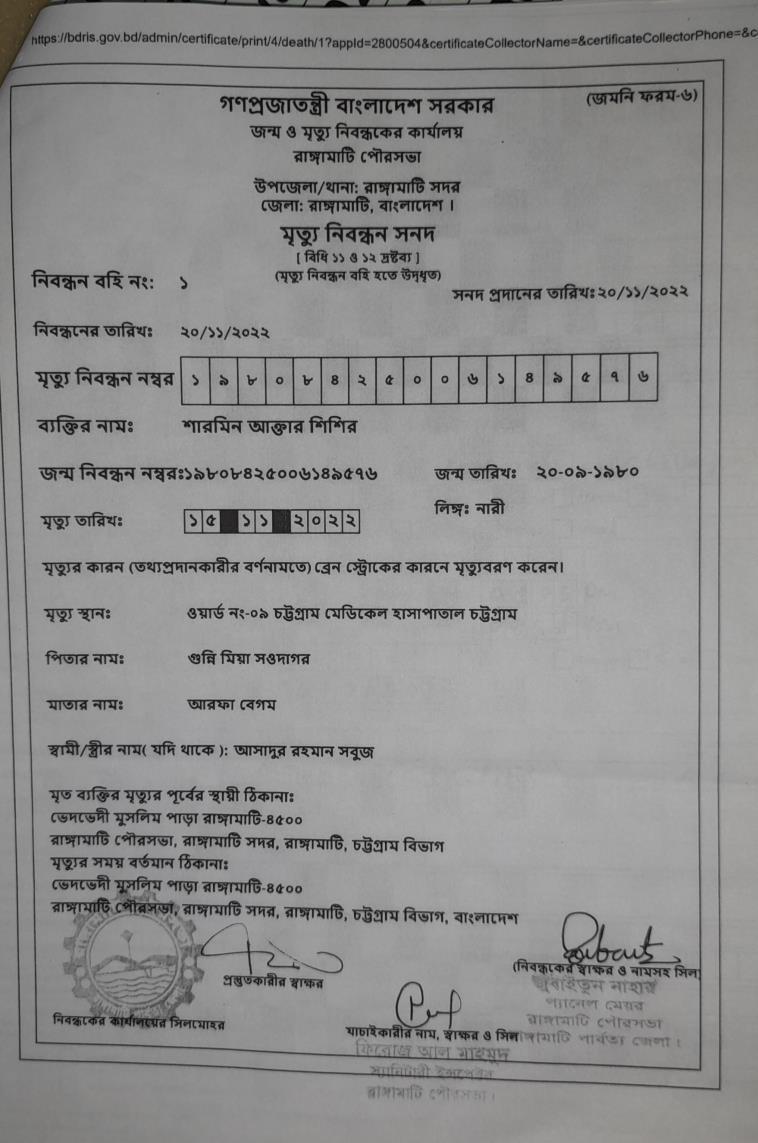 https://bdris.gov.bd/admin/certificate/print/4/death/1?appId=2800504&certificateCollectorName=&certificateCollectorPhone=&c
(জমনি ফরম-৬)
গণপ্রজাতন্ত্রী বাংলাদেশ সরকার
জন্ম ও মৃত্যু নিবন্ধকের কার্যালয়
রাঙ্গামাটি পৌরসভা
উপজেলা/থানা: রাঙ্গামাটি সদর
জেলা: রাঙ্গামাটি, বাংলাদেশ ।
মৃত্যু নিবন্ধন সনদ
[ বিধি ১১ ও ১২ দ্রষ্টব্য ]
(মৃত্যু নিবন্ধন বহি হতে উদ্ধৃত)
নিবন্ধন বহি নং: ১
সনদ প্রদানের তারিখঃ২০/১১/২০২২
নিবন্ধনের তারিখঃ ২০/১১/২০২২
মৃত্যু নিবন্ধন নম্বর ১ ৯ ৮ ০ ৮ ৪ ২ ৫ ০ ০ ৬ ১ ৪ ৯ ৫ ৭ ৬
ব্যক্তির নামঃ শারমিন আক্তার শিশির
জন্ম নিবন্ধন নম্বরঃ১৯৮০৮৪২৫০০৬১৪৯৫৭৬ জন্ম তারিখঃ ২০-০৯-১৯৮০
লিঙ্গ: নারী
মৃত্যু তারিখঃ ১ ৫ ১ ১ ২ ০ ২ ২
মৃত্যুর কারন (তথ্যপ্রদানকারীর বর্ণনামতে) ব্রেন স্ট্রোকের কারনে মৃত্যুবরণ করেন।
মৃত্যু স্থানঃ ওয়ার্ড নং-০৯ চট্টগ্রাম মেডিকেল হাসাপাতাল চট্টগ্রাম
পিতার নামঃ গুন্নি মিয়া সওদাগর
মাতার নামঃ আরফা বেগম
স্বামী/স্ত্রীর নাম( যদি থাকে ): আসাদুর রহমান সবুজ
মৃত ব্যক্তির মৃত্যুর পূর্বের স্থায়ী ঠিকানাঃ
ভেদভেদী মুসলিম পাড়া রাঙ্গামাটি-৪৫০০
রাঙ্গামাটি পৌরসভা, রাঙ্গামাটি সদর, রাঙ্গামাটি, চট্টগ্রাম বিভাগ
মৃত্যুর সময় বর্তমান ঠিকানাঃ
ভেদভেদী মুসলিম পাড়া রাঙ্গামাটি-৪৫০০
রাঙ্গামাটি পৌরসভা, রাঙ্গামাটি সদর, রাঙ্গামাটি, চট্টগ্রাম বিভাগ, বাংলাদেশ
প্রস্তুতকারীর স্বাক্ষর
(নিবন্ধকের স্বাক্ষর ও নামসহ সিল)
জুবাইতুন নাহার
প্যানেল মেয়র
রাঙ্গামাটি পৌরসভা
রাঙ্গামাটি পার্বত্য জেলা ।
নিবন্ধকের কার্যালয়ের সিলমোহর
যাচাইকারীর নাম, স্বাক্ষর ও সিল
ফিরোজ আল মাহমুদ
স্যানিটারী ইন্সপেক্টর
রাঙ্গামাটি পৌরসভা।